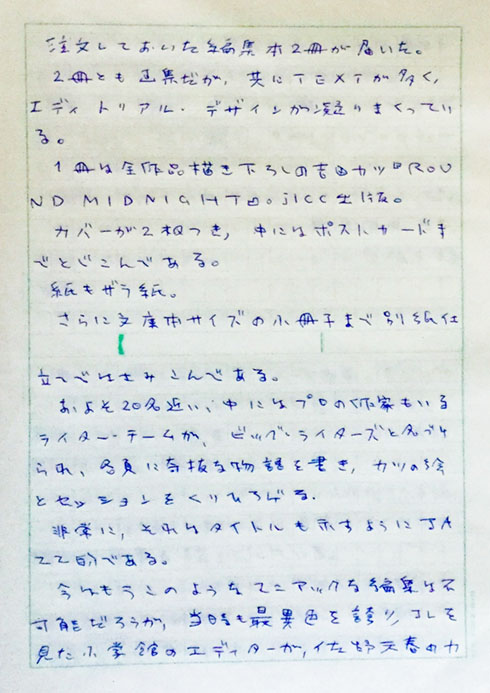 注文しておいた編集本2冊が届いた。
2冊とも画集だが、共にTEXTが多く、
エディトリアル・デザインが凝りまくってい
る。
1冊は全作品描き下ろしの吉田カツ『ROU
ND MIDNIGHT』。JICC出版。
カバーが2枚つき、中にはポストカードま
でとじこんである。
紙もザラ紙。
さらに文庫本サイズの小冊子まで別紙仕
立てではさみこんである。
およそ20名近い、中にはプロの作家もいる
ライター・チームが、ビッグ・ライターズと名づけ
られ、各頁に奇抜な物語を書き、カツの絵
とセッションをくりひろげる。
非常に、それはタイトルも示すようにJA
ZZ的である。
今はもうこのようなマニアックな編集は不
可能だろうが、当時も最異色を誇り、コレを
見た小学館のエディターが、佐野元春のカ